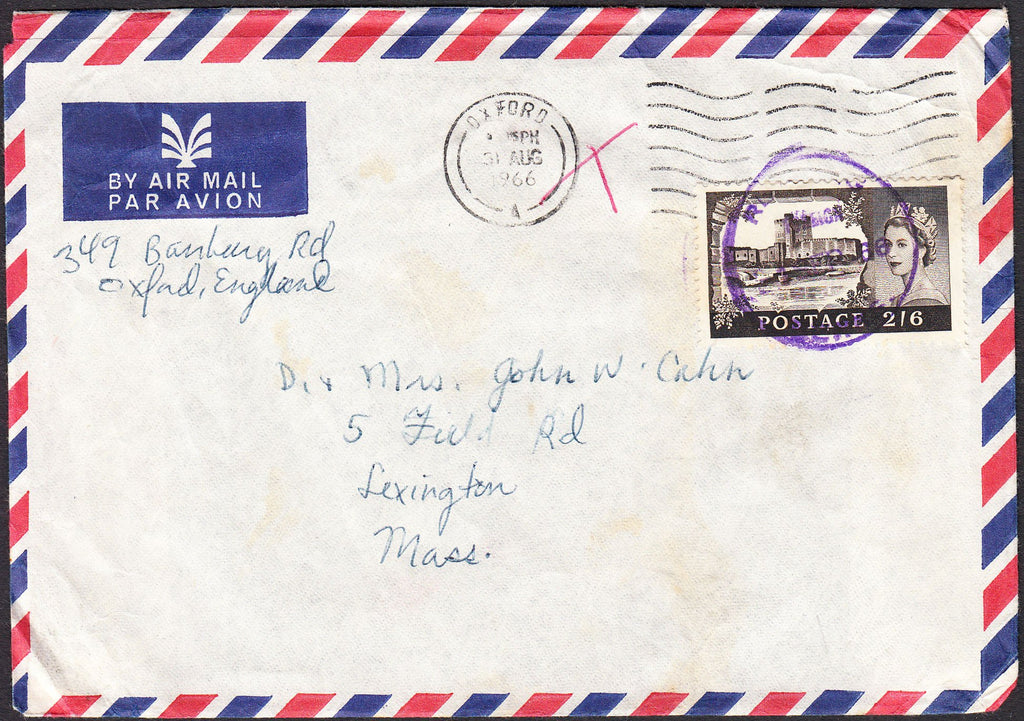 OXFORD
31 AUG
1966
A
BY AIR MAIL
PAR AVION
POSTAGE 2/6
349 Banbury Rd
Oxford, England
Dr + Mrs. John W. Cahn
5 Field Rd
Lexington
Mass.